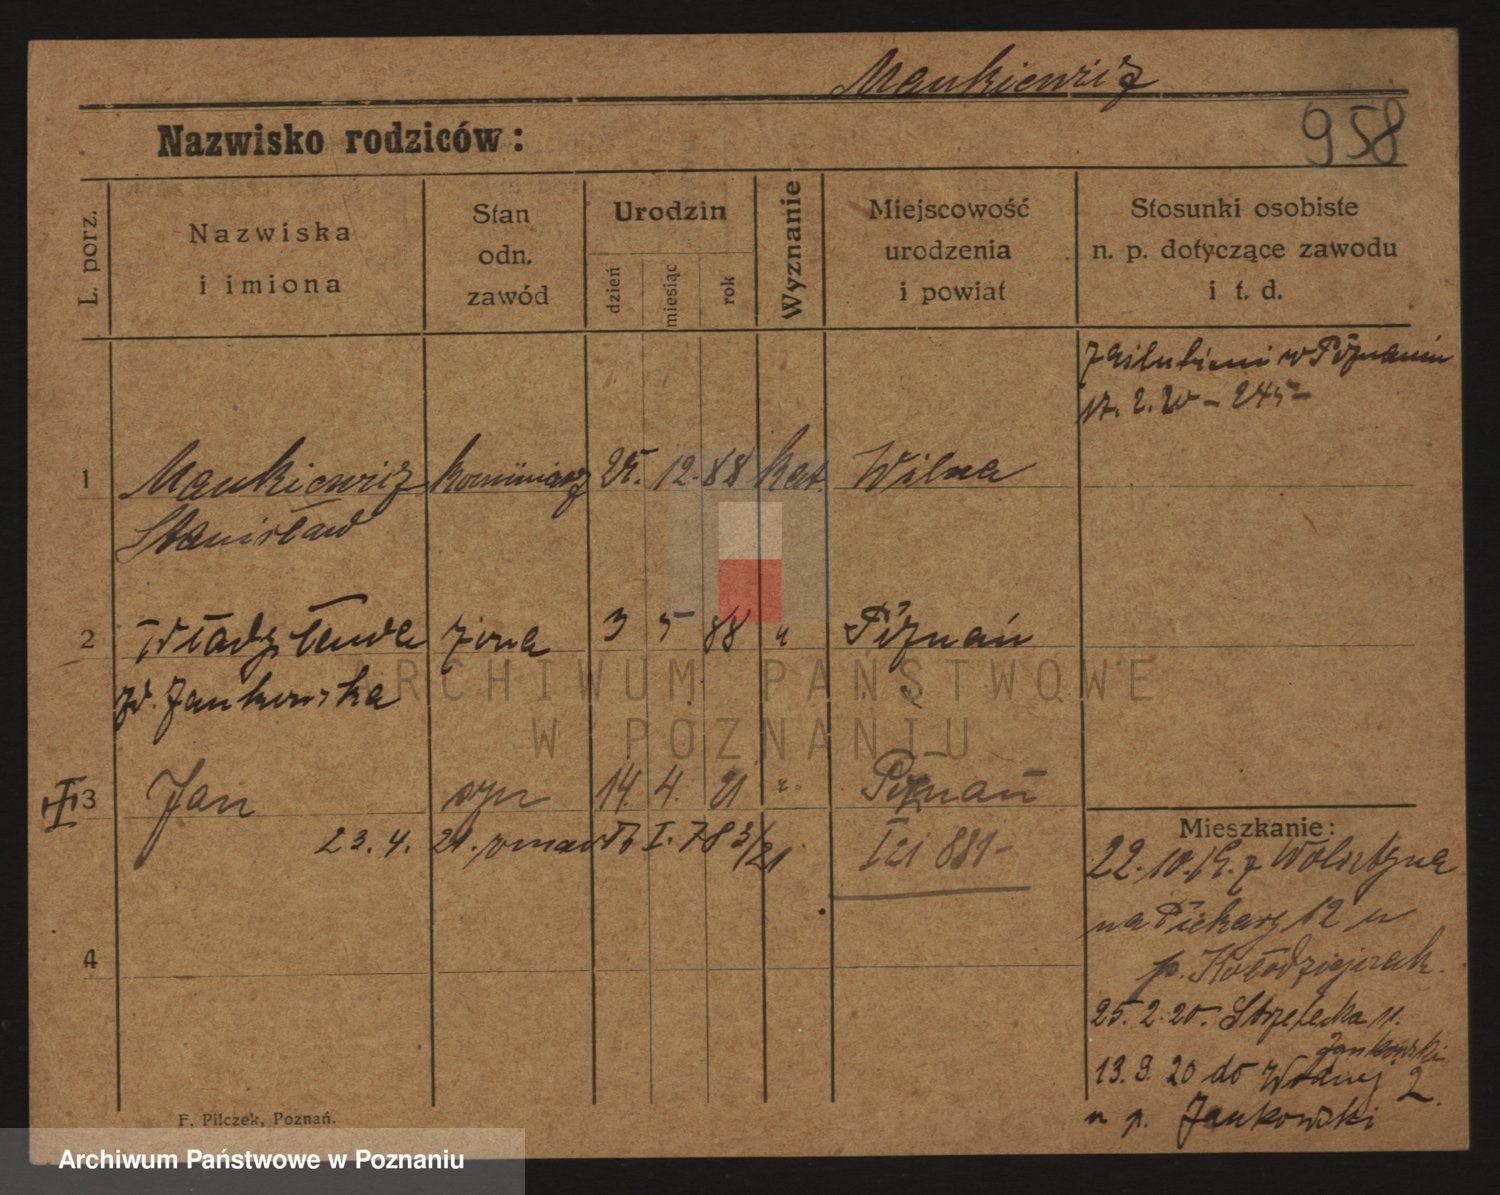 Mankiewicz
958
Nazwisko rodziców:
L. porz.
Nazwiska
i imiona
Stan
odn.
zawód
Urodzin
dzień
miesiąc
rok
Wyznanie
Miejscowość
urodzenia
i powiat
Stosunki osobiste
n. p. dotyczące zawodu
i t. d.
zaślubieni w Poznaniu
17. 2. 20 – 245 –
1 Mankiewicz kominiarz 25. 12. 88 kat. Wilna
Stanisław
2 Władysława żona 3 5 88 " Poznań
zd. Jankowska
III 3 Jan syn 14. 4. 21 " Poznań
23. 4. 21. zmarł I. 783/21
I 21 881 –
4
Mieszkanie:
22. 10. 19. z Wolsztyna
na Piekary 12 u
p. Kołodziejczak.
25. 2. 20. Strzelecka 11.
Jankowski
13. 9. 20 do Wodnej 2.
u p. Jankowski
F. Pilczek, Poznań.
ARCHIWUM PAŃSTWOWE
W POZNANIU
Archiwum Państwowe w Poznaniu